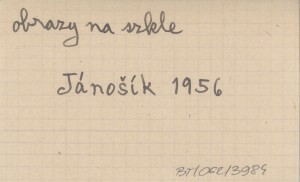 obrazy na szkle
Jánošík 1956
BT/OCZ/3984